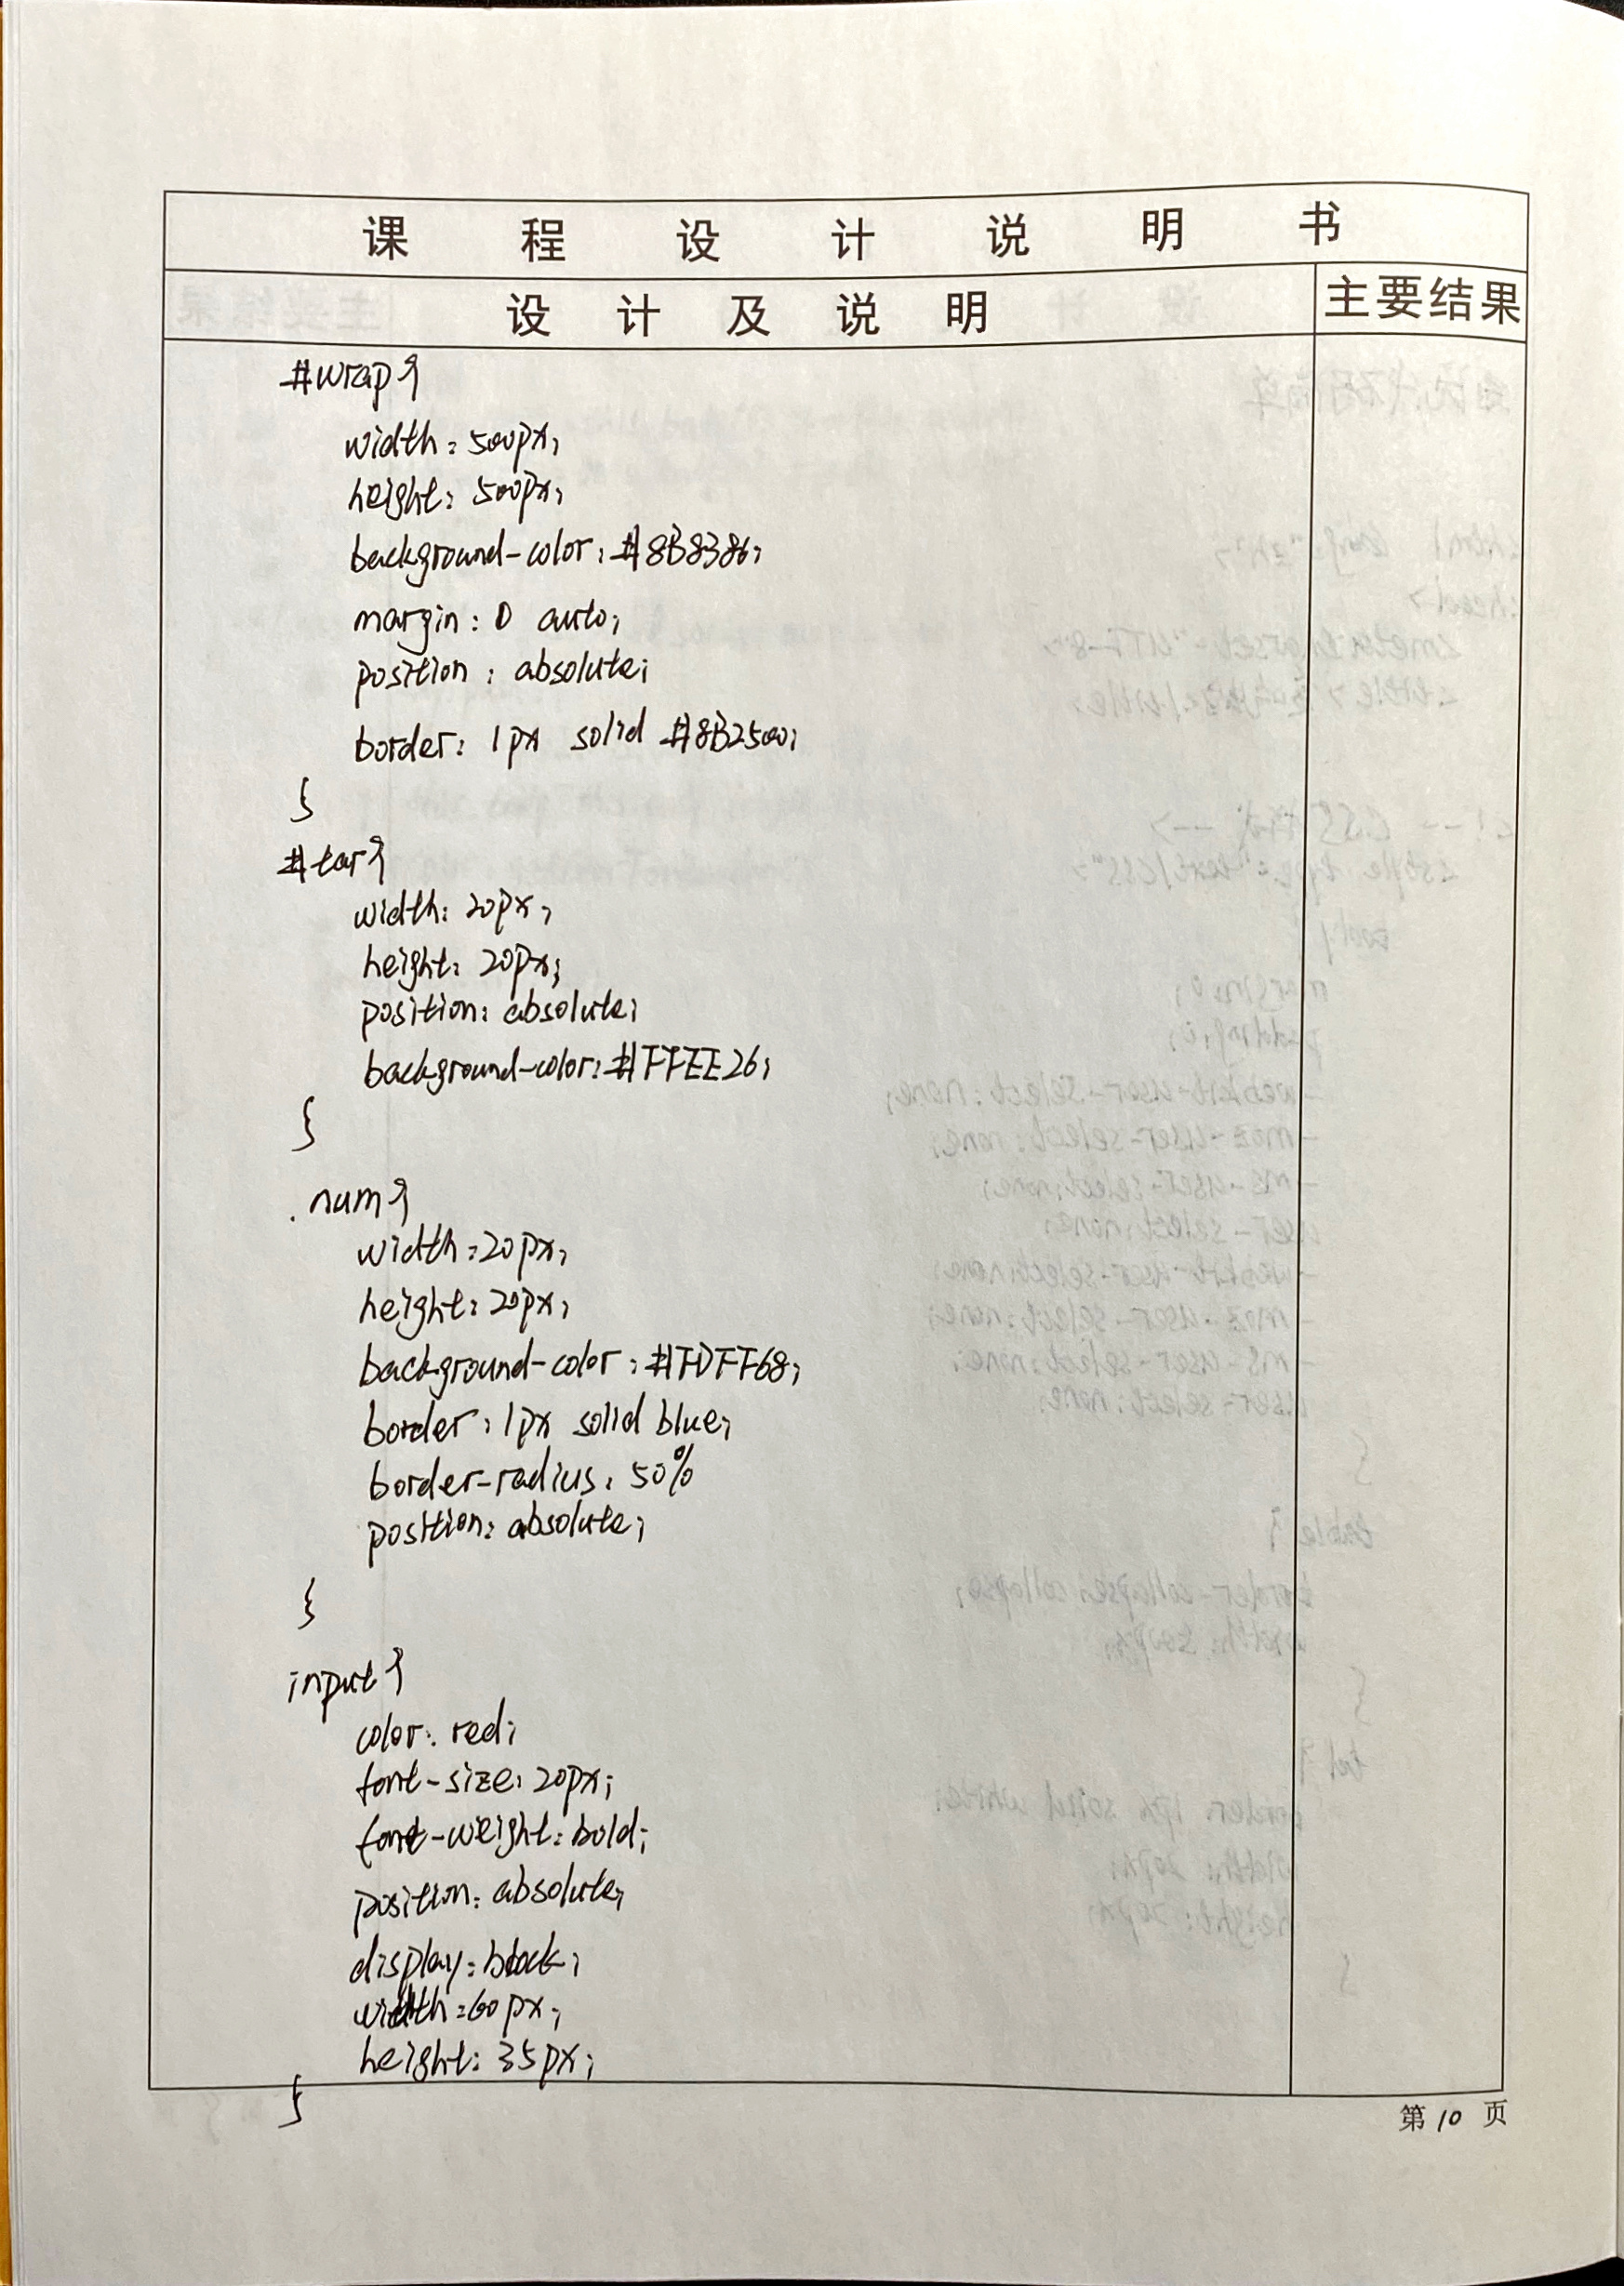 课程设计说明书
设计及说明 主要结果
#wrap{
width: 500px;
height: 500px;
background-color: #8B8386;
margin: 0 auto;
position: absolute;
border: 1px solid #8B2500;
}
#tar{
width: 20px;
height: 20px;
position: absolute;
background-color: #FFEE26;
}
.num{
width: 20px;
height: 20px;
background-color: #FDFF68;
border: 1px solid blue;
border-radius: 50%
position: absolute;
}
input{
color: red;
font-size: 20px;
font-weight: bold;
position: absolute;
display: block;
width: 60px;
height: 35px;
}
第 10 页